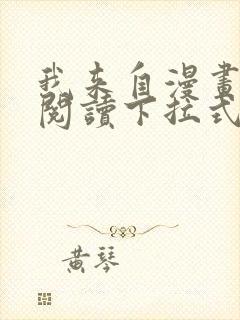 我来自漫畫
閱讀下拉式
黃琴